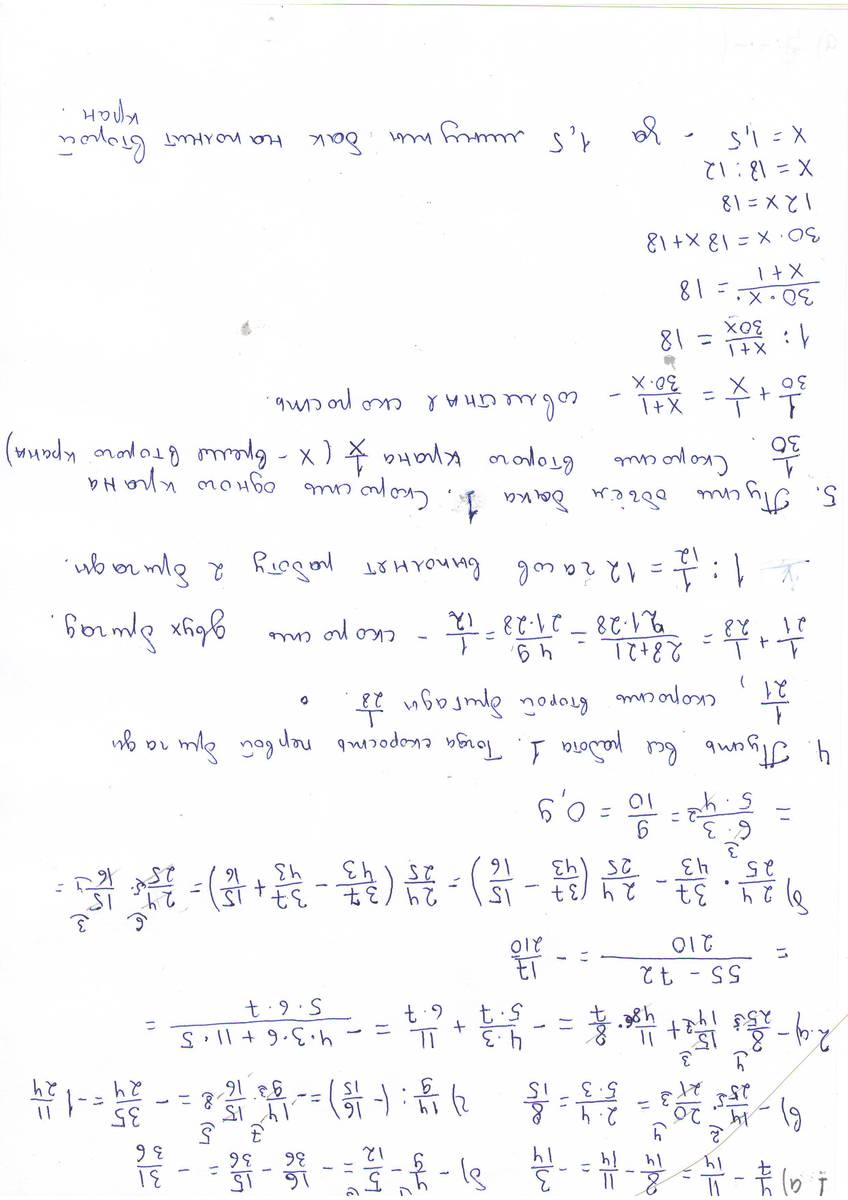 1 а) 4/7 - 11/14 = 8/14 - 11/14 = - 3/14 б) - 4/9 - 5/12 = - 16/36 - 15/36 = - 31/36
в) - 14/25 · 20/21 = 2·4/5·3 = 8/15 г) 14/9 : (- 16/15) = - 14/9 · 15/16 = - 35/24 = - 1 11/24
2.а) - 8/25 · 15/14 + 11/48 · 8/7 = - 4·3/5·7 + 11/6·7 = - 4·3·6 + 11·5/5·6·7 =
= 55 - 72/210 = - 17/210
б) 24/25 · 37/43 - 24/25 (37/43 - 15/16) = 24/25 (37/43 - 37/43 + 15/16) = 24/25 · 15/16 =
= 6·3/5·4 = 9/10 = 0,9
4. Пусть вся работа 1. Тогда скорость первой бригады
1/21, скорость второй бригады 1/28.
1/21 + 1/28 = 28+21/21·28 = 49/21·28 = 1/12 - скорость двух бригад.
1 : 1/12 = 12 часов выполнят работу 2 бригады.
5. Пусть объём бака 1. Скорость одного крана
1/30. Скорость второго крана 1/x (x - время второго крана)
1/30 + 1/x = x+1/30·x - совместная скорость.
1 : x+1/30x = 18
30·x/x+1 = 18
30·x = 18x+18
12x = 18
x = 18:12
x = 1,5 - за 1,5 минуты бак наполнит второй
кран.